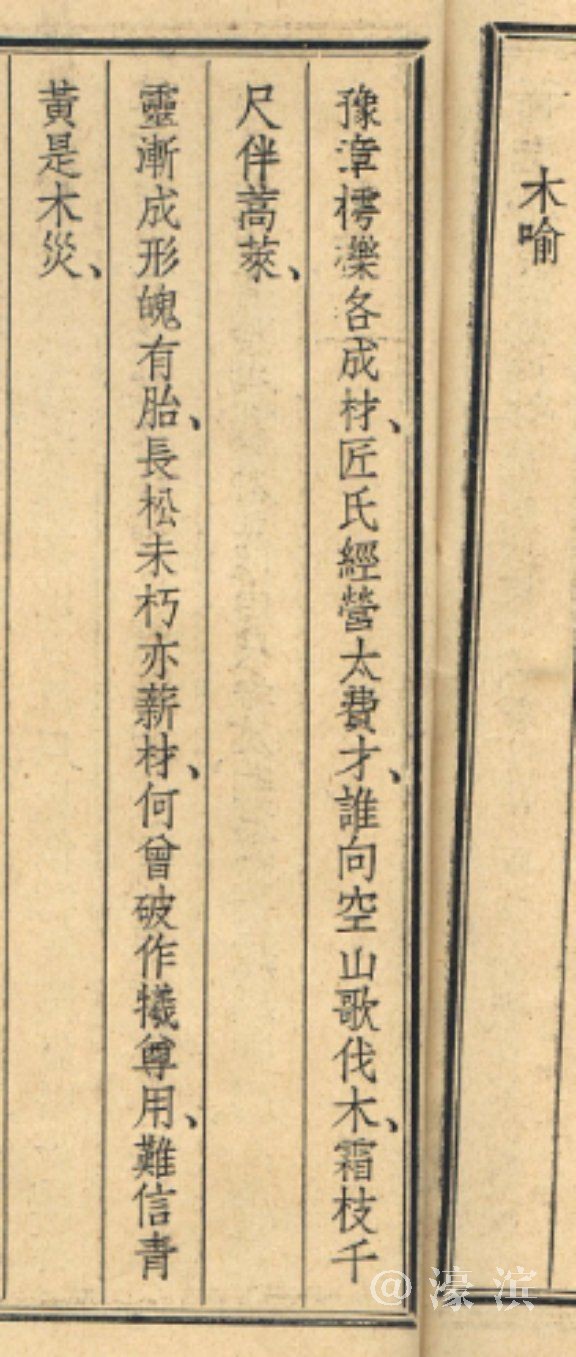 木喻
豫章樗櫟各成材、匠氏經營太費才、誰向空山歌伐木、霜枝千
尺伴蒿萊、
靈漸成形魄有胎、長松未朽亦薪材、何曾破作犧尊用、難信青
黃是木災、
@濠滨